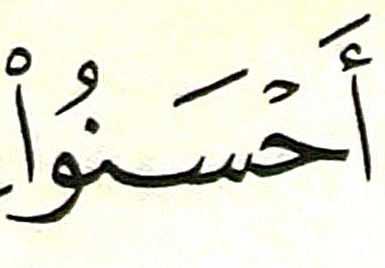 أَحْسَنُواْ